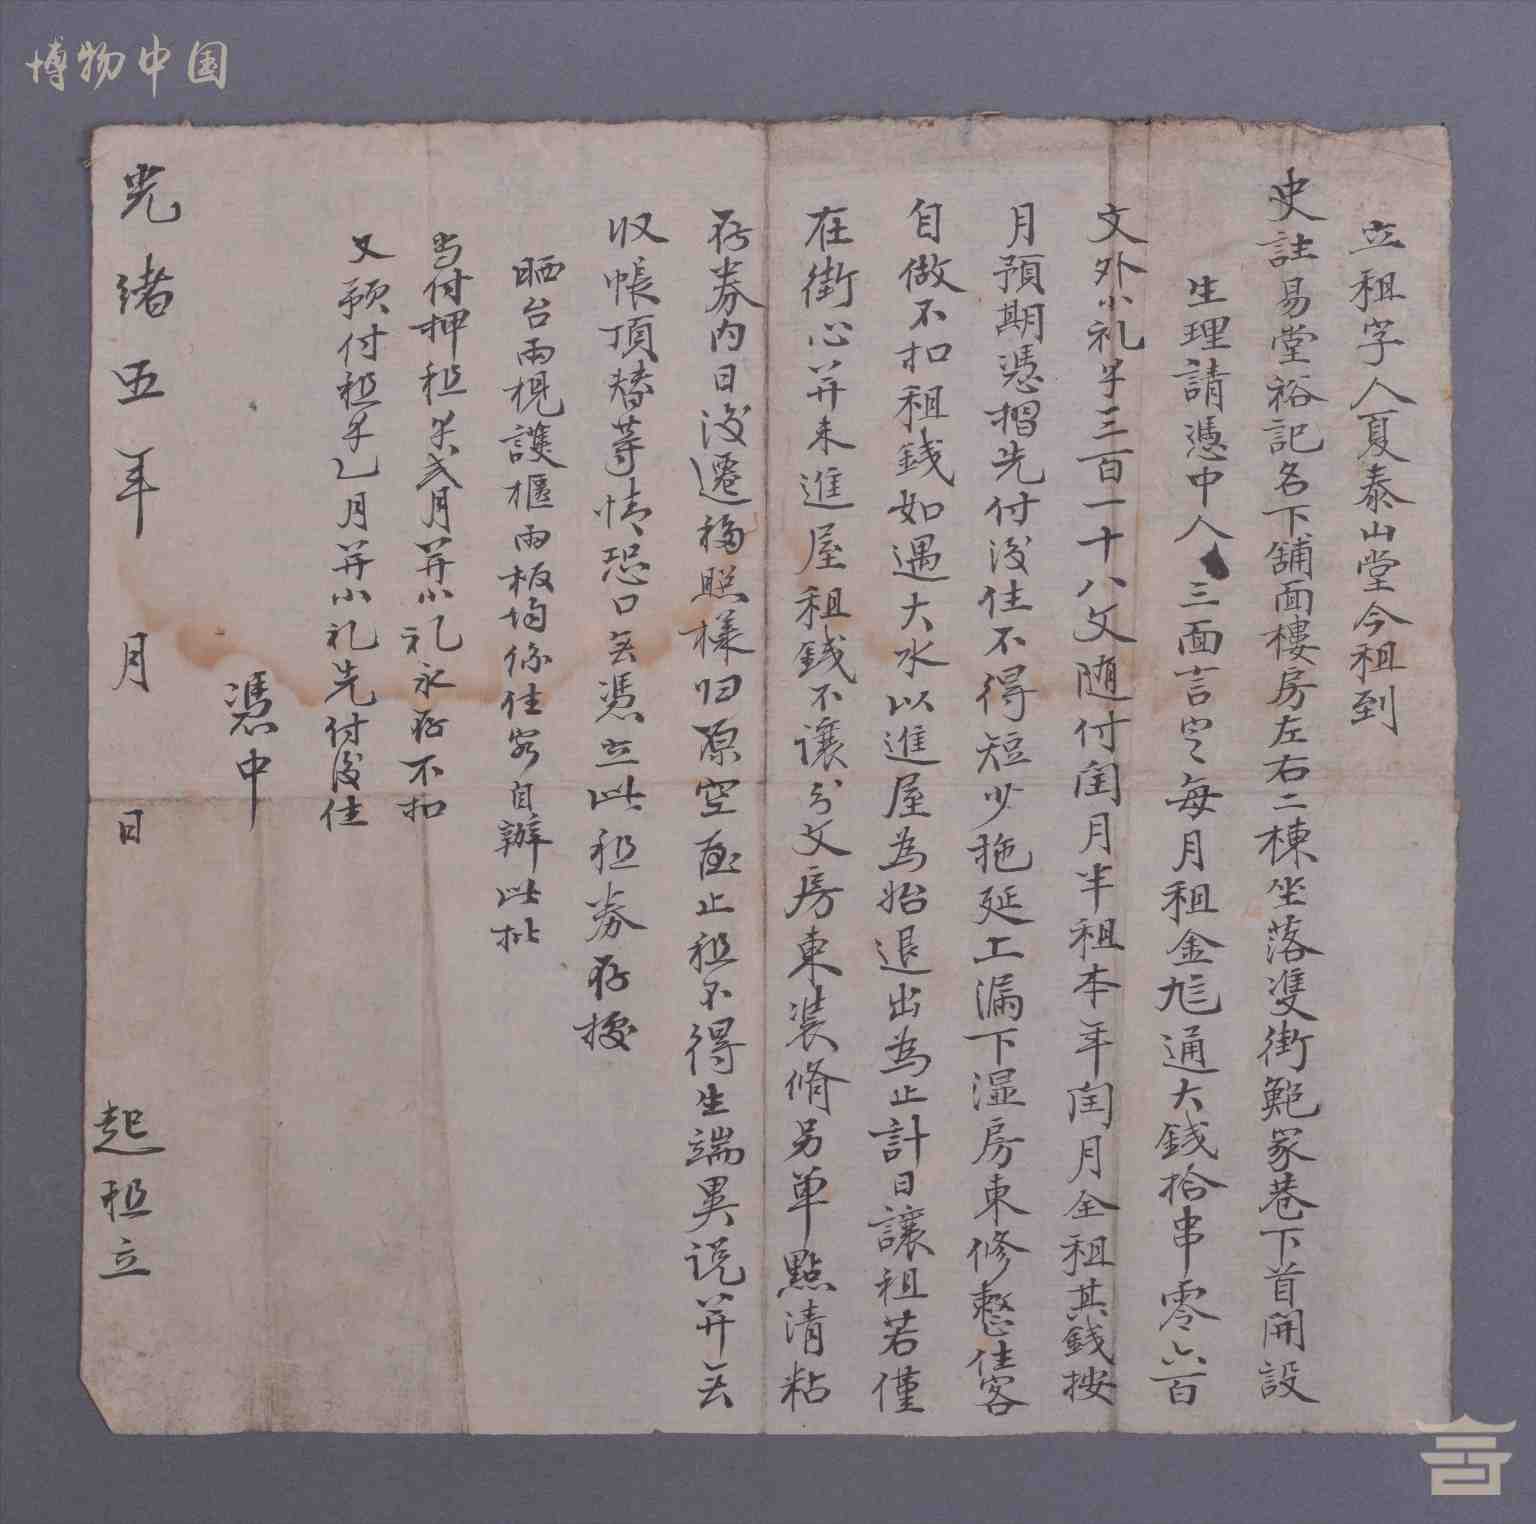 博物中国
立租字人夏泰山堂今租到
史註易堂裕記名下舖面樓房左右二棟坐落雙街鮑家巷下首開設
生理請憑中人三面言定每月租金九通大錢拾串零六百
文外小礼三百一十八文随付闰月半租本年闰月全租其錢按
月預期憑摺先付後住不得短少拖延上漏下湿房東修整住客
自做不扣租錢如遇大水以進屋為始退出為止計日讓租若僅
在街心并未進屋租錢不讓分文房東裝脩另单點清粘
存券内日後遷移照樣归原空 止租不得生端異说并无
収帳頂替等情恐口无憑立此租券存据
晒台兩梘護櫃兩板均係住客自辦此批
当付押租 弍月并小礼永存不扣
又预付租 乙月并小礼先付後住
憑中
光緒五年 月 日 起租立